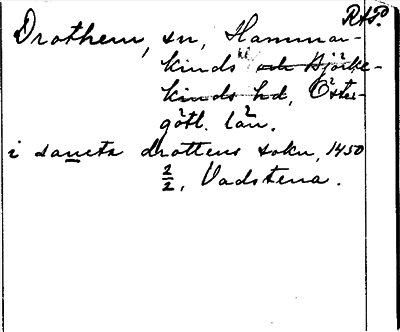 RAP.
Drothem, sn, Hammar-
kinds och Björke-
kinds hd, Öster-
götl. län.
i sancta drottens sokn, 1450
2/2, Vadstena.